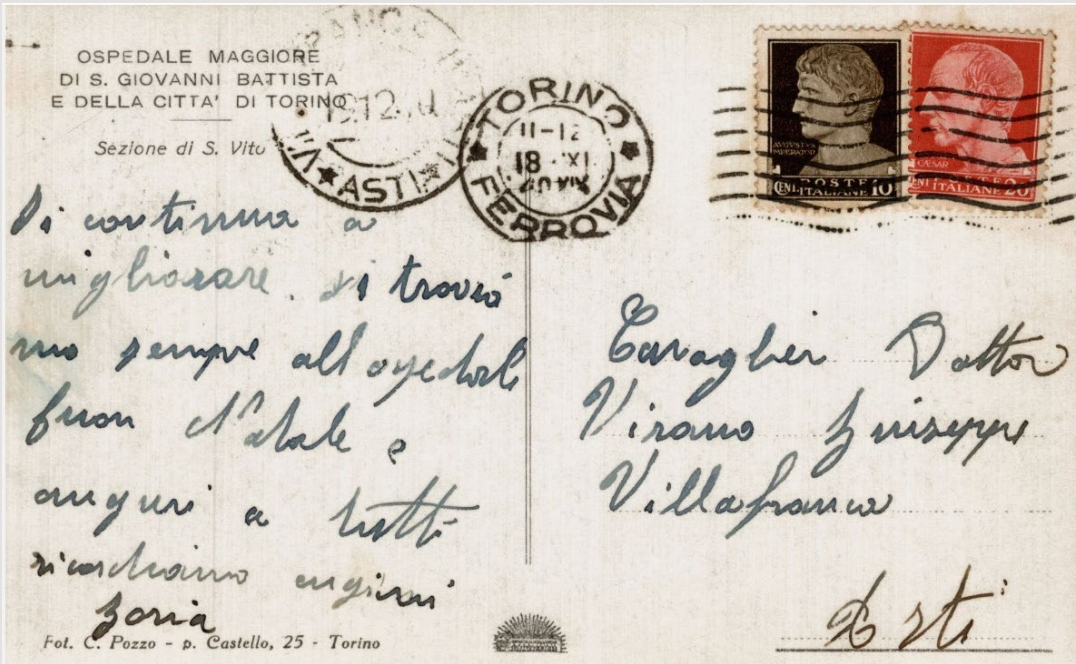 OSPEDALE MAGGIORE
DI S. GIOVANNI BATTISTA
E DELLA CITTA' DI TORINO
Sezione di S. Vito
19.12.40
ASTI
TORINO
11-12
18 XI
40 XIX
FERROVIA
AUGUSTVS
IMPERATOR
CENT. POSTE 10
ITALIANE
CAESAR
CENT. POSTE 20
ITALIANE
Si continua a
migliorare. si trovia
mo sempre all'ospedale
buon Natale e
auguri a tutti
ricordiamo
Cavaglier Dottor
Virano Giuseppe
Villafranca
Asti
Fot. C. Pozzo - p. Castello, 25 - Torino